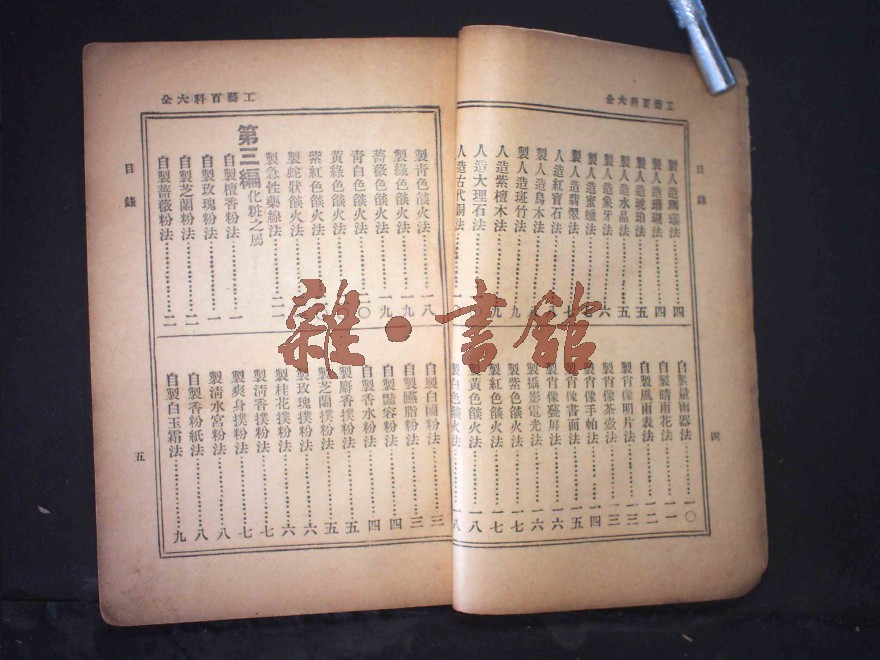 工藝百科大全
目錄
製人造瑪瑙法 四
製人造珊瑚法 四
製人造琥珀法 五
製人造水晶法 五
製人造象牙法 六
製人造蜜蠟法 七
製人造翡翠法 七
人造紅寶石法 八
製人造烏木法 八
製人造斑竹法 九
人造紫檀木法 九
人造大理石法
人造古代銅法
自製量雨器法 一〇
自製晴雨花法 一一
自製風雨表法 一二
製肖像明片法 一三
製肖像茶壺法 一三
製肖像手帕法 一四
製肖像書面法 一五
製肖像藝屏法 一六
製攝影電光法 一六
製紫色燄火法 一七
製紅色燄火法 一七
製黃色燄火法 一八
製白色燄火法 一八
四
工藝百科大全
目錄
製靑色燄火法 一八
製綠色燄火法 一九
薔薇色燄火法 一九
靑白色燄火法 二〇
黃綠色燄火法
紫紅色燄火法
製蛇狀燄火法
製急性藥線法 二二
第三編 化粧之屬
自製檀香粉法 一
自製玫瑰粉法 一
自製芝蘭粉法 二
自製薔薇粉法 二
自製白蘭粉法 三
自製臙脂粉法 三
自製豔容粉法 四
自製香水粉法 四
製麝香撲粉法 五
製芝蘭撲粉法 五
製玫瑰撲粉法 六
製桂花撲粉法 六
製淸香撲粉法 七
製爽身撲粉法 七
製淸水宮粉法 八
自製香粉紙法 八
自製白玉霜法 九
五
雜·書館